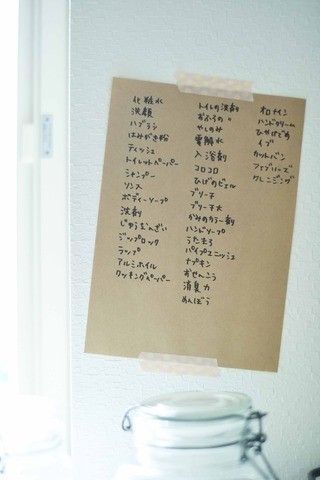 化粧水
洗顔
ハブラシ
はみがき粉
ティッシュ
トイレットペーパー
シャンプー
リンス
ボディーソープ
洗剤
じゅうなんざい
ジップロック
ラップ
アルミホイル
クッキングペーパー
トイレの洗剤
おふろの 〃
やしのみ
電解水
入浴剤
コロコロ
ひげのジェル
ブリーチ
ブリーチ大
かみのカラー剤
ハンドソープ
うたまろ
パイプユニッシュ
ナプキン
おせんこう
消臭力
めんぼう
オロナイン
ハンドクリーム
ひやけどめ
イブ
カットバン
ファブリーズ
クレンジング